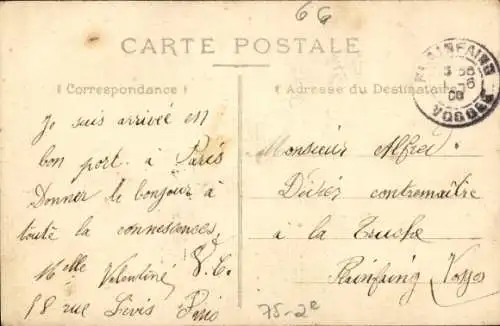 66
CARTE POSTALE
Correspondance
Adresse du Destinataire
PLAINFAING
VOSGES
Je suis arrivée en
bon port. à Paris
Donner le bonjour à
toute la connesances
Melle Valentine V. C.
58 rue Lévis Paris
Monsieur Alfred
contremaître
à la Truche
Plainfaing Vosges
75-2e